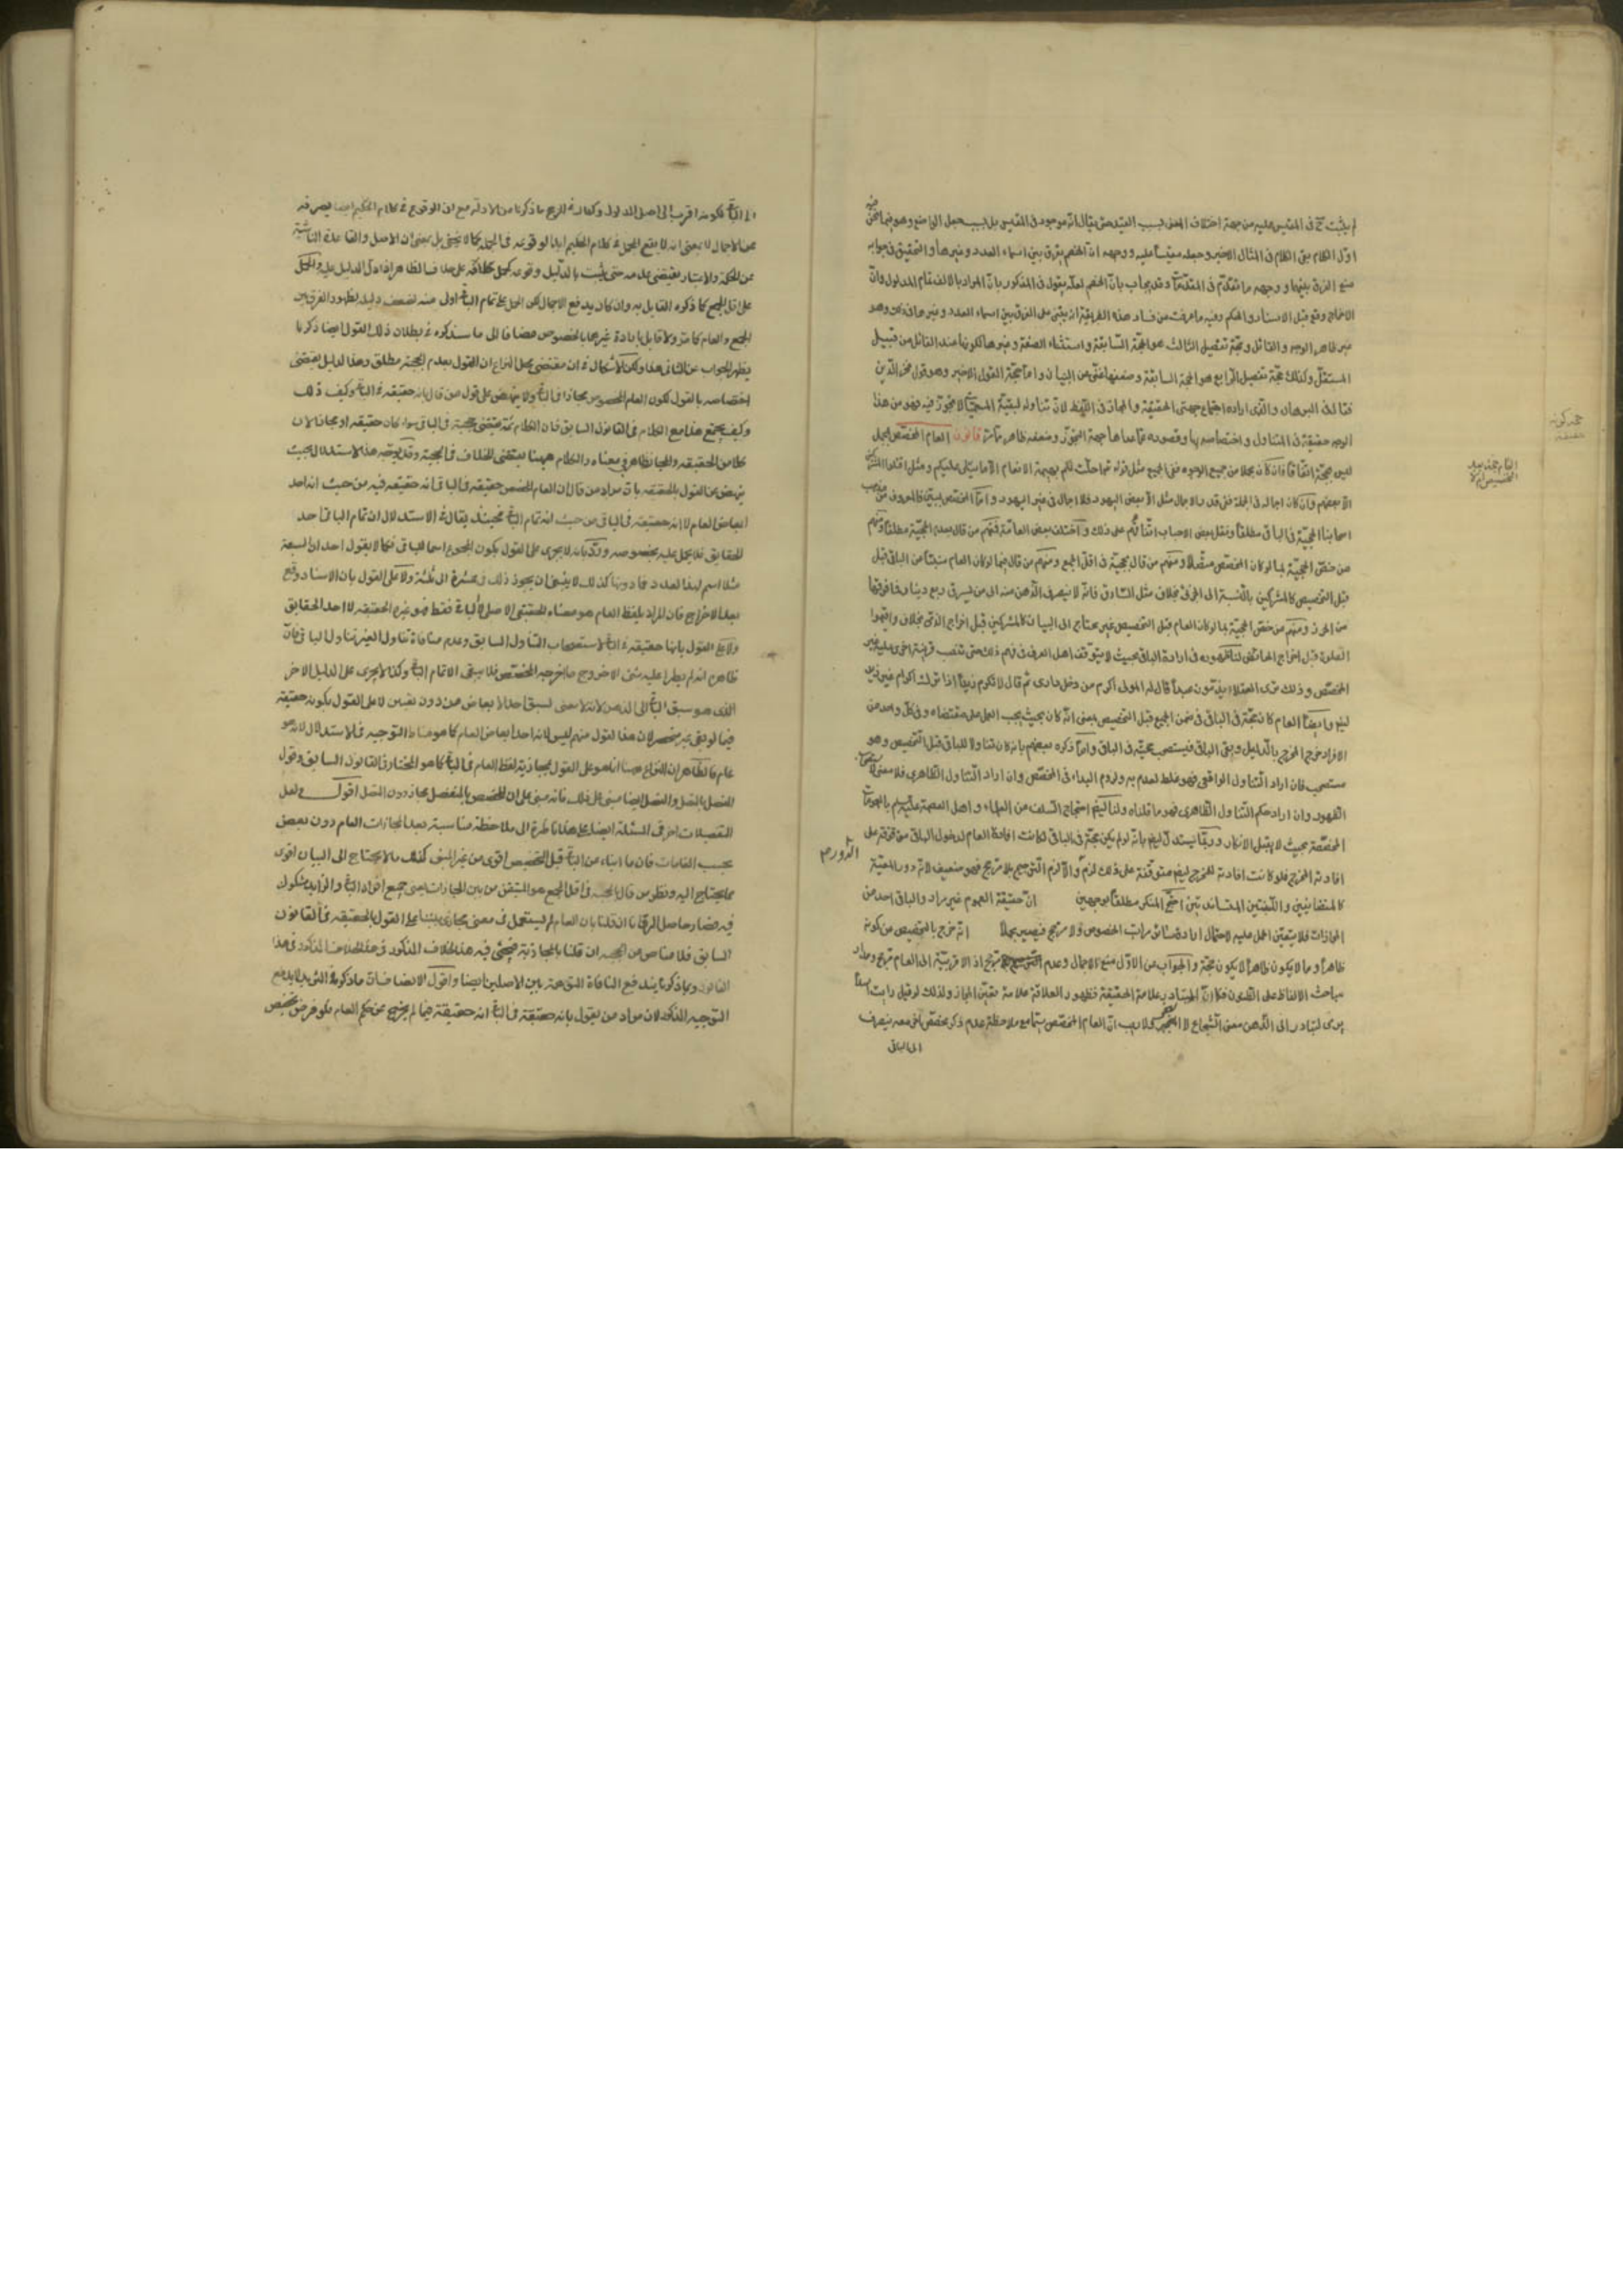 لم يثبت ح في المقيس عليه من جهة اختلاف المعنى بسبب القيد حتى يقال انه موجود في المقيس بل بسبب جعل الواضع وهو فيما نحن فيه
اوّل الكلام بقى الكلام في المثال الاخير وجعله مقيساً عليه ووجهه ان الخصم يفرق بين اسماء العدد وغيرها والتحقيق في جوابه
منع الفرق بينهما ووجهه ما تقدّم في المقدّمة وقد يجاب بانّ الخصم لعلّه يقول في المذكور بانّ المراد بالالف تمام المدلول وانّ
الاخراج وقع قبل الاسناد والحكم وفيه ما عرفت من فساد هذه الطريقة ان يبتنى على الفرق بين اسماء العدد وغيرها في ذلك وهو
غير ظاهر الوجه والقائل وحجّة تفصيل الثالث هو الحجّة السّابقة واستثناء الصفة وغيرها لكونها عند القائل من قبيل
المستقلّ وكذلك حجّة تفصيل الرّابع هو الحجة السابقة وضعفها غنّي عن البيان وامّا حجّة القول الاخير وهو قول فخر الدّين
فتا له في البرهان والّذي اراده اجتماع جهتى الحقيقة والمجاز في اللّفظ لانّ تناوله لبقيّة المسميّات لا تجوّز فيه فهو من هذا
الوجه حقيقة في المتناول واختصاصه بها وقصوره عمّا عداها جهة التجوّز وضعفه ظاهر ممّا مرّ قانون العام المخصّص بمجمل
ليس بحجّة اتّفاقاً فان كان مجملا من جميع الوجوه ففي الجميع مثل قوله تعالى احلّت لكم بهيمة الانعام الا ما يتلى عليكم ومثل اقتلوا المشركين
الّا بعضهم وان كان اجماله في الجملة ففي قدر الاجمال مثل الّا بعض اليهود فلا اجمال في غير اليهود وامّا المخصّص بمبيّن فالمعروف من مذهب
اصحابنا الحجيّة في الباقي مطلقاً ونقل بعض الاصحاب اتّفاقهم على ذلك واختلف بعض العامّة فمنهم من قال بعدم الحجيّة مطلقاً ومنهم
من خصّ الحجيّة بما لو كان المخصّص متّصلاً ومنهم من قال بحجيّته في اقلّ الجمع ومنهم من قال بها لو كان العام منبئاً عن الباقي قبل
قبل التخصيص كالمشركين بالنّسبة الى الحربي بخلاف مثل السّارق فانّه لا ينصرف الذّهن منه الى من يسرق ربع دينار فما فوقها
من الحرز ومنهم من خصّ الحجيّة بما لو كان العام قبل التخصيص غير محتاج الى البيان كالمشركين قبل اخراج الذّمي بخلاف واقيموا
الصلوة قبل اخراج الحائض لنا ظهوره في ارادة الباقي بحيث لا يتوقف اهل العرف في فهم ذلك حتى تنصب قرينة اخرى عليه غير
المخصّص ولذلك ترى العقلاء يذمّون عبداً قال له المولى اكرم من دخل داري ثم قال لا تكرم زيداً اذا ترك اكرام غير زيد
لنا وايضاً العام كان حجّة في الباقي في ضمن الجميع قبل التخصيص بمعنى انّه كان بحيث يجب العمل على مقتضاه وفي كلّ واحد من
الافراد خرج المخرج بالدّليل وبقي الباقي فيستصحب حجيّته في الباقي وامّا ذكره بعضهم بانه كان متناولا للباقي قبل التخصيص وهو
مستصحب فان اراد التّناول الواقعي فهو غلط لعدمه ولزوم البداء في المخصّص وان اراد التّناول الظاهري فلا معنى لاستصحاب
الظهور وان اراد حكم التّناول الظاهري فهو ما قلناه ولنا ايضاً احتجاج السّلف من العلماء واهل العصمة عليهم السلم بالعمومات
المخصّصة بحيث لا يقبل الانكار وربّما يستدلّ ايضاً بانّه لو لم يكن حجّة في الباقي لكانت افادة العام لدخول الباقي موقوفة على
افادته المخرج فلو كانت افادته للمخرج ايضاً متوقفة على ذلك لزم الدّور والّا لزم التّرجيح بلا مرجّح فهو ضعيف لانّه دور المعيّة
كالمتضايفين واللّبنتين المتساندتين احتجّ المنكر مطلقاً بوجهين انّ حقيقة العموم غير مراد والباقي احد من
المجازات فلا يتعيّن الحمل عليه لاحتمال ارادة سائر مراتب الخصوص ولا مرجّح فيصير مجملاً انّه خرج بالتخصيص من كونه
ظاهراً وما لا يكون ظاهراً لا يكون حجّة والجواب عن الاوّل منع الاجمال وعدم المرجّح اذ الاقربيّة الى العام مرجّح ومدار
مباحث الالفاظ على الظنون فكما انّ التّبادر علامة الحقيقة فظهور العلاقة علامة تعيّن المجاز ولذلك لو قيل رايت اسداً
يرمى لتبادر الى الذّهن معنى الشّجاع لا البخر ولا ريب انّ العام المخصّص سيّما مع ملاحظة عدم ذكر مخصّص اخر معه ينصرف
الى الباقي
الدور م
العام حجة بعد التخصيص ام لا
الى الباقي لكونه اقرب الى اصل المدلول وكفانا في المرجح ما ذكرنا من الادلة مع ان الوقوع في كلام الحكيم ايضا يصرفه
عن الاجمال لا بمعنى انه لا يقع المجمل في كلام الحكيم ابدا لوقوعه في الجملة كما لا يخفى بل بمعنى ان الاصل والقاعدة الناشية
عن الحكمة والاعتبار يقتضي عدمه حتى يثبت بالدليل وقوى كحمل كلامه على خلاف الظاهر اذا دل الدليل عليه والحمل
على اقل الجمع كما ذكره القايل به وان كان يدفع الاجمال لكن الحمل على تمام الباقي اولى منه لضعف دليله بظهور الفرق بين
الجمع والعام كما مر ولا قايل بارادة غيرهما بالخصوص مضافا الى ما سنذكره في بطلان ذلك القول ايضا ذكرنا
يظهر الجواب عن الثاني هذا ولكن الاشكال في ان مقتضى محل النزاع ان القول بعدم الحجية مطلق وهذا الدليل يقتضي
اختصاصه بالقول بكون العام المخصوص مجازا في الباقي ولا ينهض على قول من قال بانه حقيقة في الباقي وكيف ذلك
وكيف يجتمع هذا مع الكلام في القانون السابق فان الكلام ثمة يقتضي حجيته في الباقي سواء كان حقيقة او مجازا لان
كلا من الحقيقة والمجاز ظاهر في معناه والكلام ههنا يقتضي الخلاف في الحجية وقد يوجّه هذا الاستدلال بحيث
ينهض على القول بالحقيقة بان مراد من قال ان العام المخصص حقيقة في الباقي انه حقيقة فيه من حيث انه احد
ابعاض العام لا انه حقيقة في الباقي من حيث انه تمام الباقي فحينئذ يقال في الاستدلال ان تمام الباقي احد
الحقايق فلا يحمل عليه بخصوصه وردّ بانه لا يجري على القول بكون المجموع اسما للباقي فكما لا يقول احد ان السبعة
مثلا اسم لهذا العدد فما دونها كذلك لا ينبغي ان يجوز ذلك في عشرة الا ثلثة ولا على القول بان الاسناد وقع
بعد الاخراج فان المراد بلفظ العام هو معناه الحقيقي الاصلي لا الباقي فقط فهو عين الحقيقة لا احد الحقايق
ولا على القول بانها حقيقة في الباقي لاستصحاب التناول السابق وعدم منافاة تناول الغير لتناول الباقي فانّ
ظاهره انه لم يطرأ عليه شئ الا خروج ما اخرجه المخصّص فلا يبقى الا تمام الباقي وكذا لا يجري على الدليل الاخر
الذي هو سبق الباقي الى الذهن لانه لا معنى لسبق احد الابعاض من دون تعيين لا على القول بكونه حقيقة
فيما لو بقي غير منحصر لان هذا القول منهم ليس لانه احد ابعاض العام كما هو مناط التوجيه في الاستدلال لانه هو
عام فالظاهر ان النزاع هنا انما هو على القول بمجازية لفظ العام في الباقي كما هو المختار في القانون السابق وقول
المفصل بالمتصل والمنفصل ايضا مبني على ذلك فانه مبني على ان المخصص بالمنفصل مجاز دون المتصل اقول ولعل
التفصيلات الاخر في المسئلة ايضا على هذا ناظرة الى ملاحظة مناسبة بعد المجازات العام دون بعض
بحسب المقامات فان ما انباء عن الباقي قبل التخصيص اقوى من غير المنبئ كذلك ما لا يحتاج الى البيان اقوى
مما يحتاج اليه ونظر من قال بالحجية في اقل الجمع هو المتيقن من بين المجازات يعني جميع افراد الباقي والزايد مشكوك
فيه فصار حاصل المرقانا ان قلنا بان العام لم يستعمل في معنى مجازي بناء على القول بالحقيقة في القانون
السابق فلا مناص من الحجية ان قلنا بالمجازية فيجئ فيه هذا الخلاف المذكور وهذا الخلاف المذكور في هذا
القانون وبما ذكرنا يندفع المنافاة المتوهمة بين الاصلين ايضا واقول الانصاف ان ما ذكره في الرد لا يدفع
التوجيه المذكور لان مراد من يقول بانه حقيقة في الباقي انه حقيقة فيما لم يخرج عن حكم العام فلو فرض تخصيص